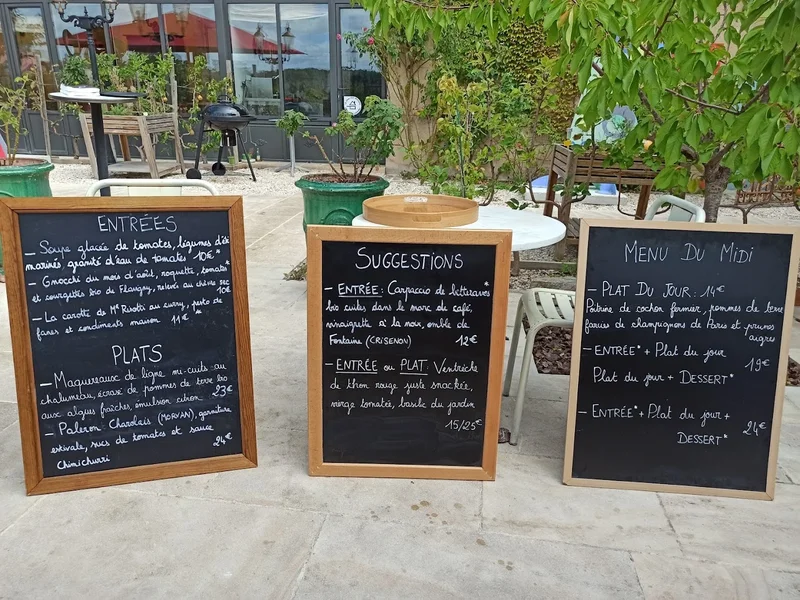 ENTRÉES
- Soupe glacée de tomates, légumes d'été
marinés granité d'eau de tomates 10€*
- Gnocchi du mois d'août, roquette, tomates*
et courgettes bio de Flavigny, relevés au chèvre sec
10€
- La carotte de Mr Risoti au curry, pesto de
fanes et condiments maison 11€ *
PLATS
- Maquereaux de ligne mi-cuits au
chalumeau, écrasé de pommes de terre bio
aux algues fraîches, émulsion citron. 23€
- Paleron Charolais (MORVAN), garniture
estivale, sucs de tomates et sauce
Chimichurri 24€
SUGGESTIONS
- ENTRÉE : Carpaccio de betteraves*
bio cuites dans le marc de café,
vinaigrette à la noix, emblé de
Fontaine (CRISENON) 12€
- ENTRÉE ou PLAT : Ventrèche
de thon rouge juste snackée,
vierge tomatée, basilic du jardin
15/25€
MENU DU MIDI
- PLAT DU JOUR : 14€
Poitrine de cochon fermier, pommes de terre
farcies de champignons de Paris et prunes
aigres
- ENTRÉE* + Plat du jour
19€
Plat du jour + DESSERT*
- ENTRÉE* + Plat du jour +
24€
DESSERT*